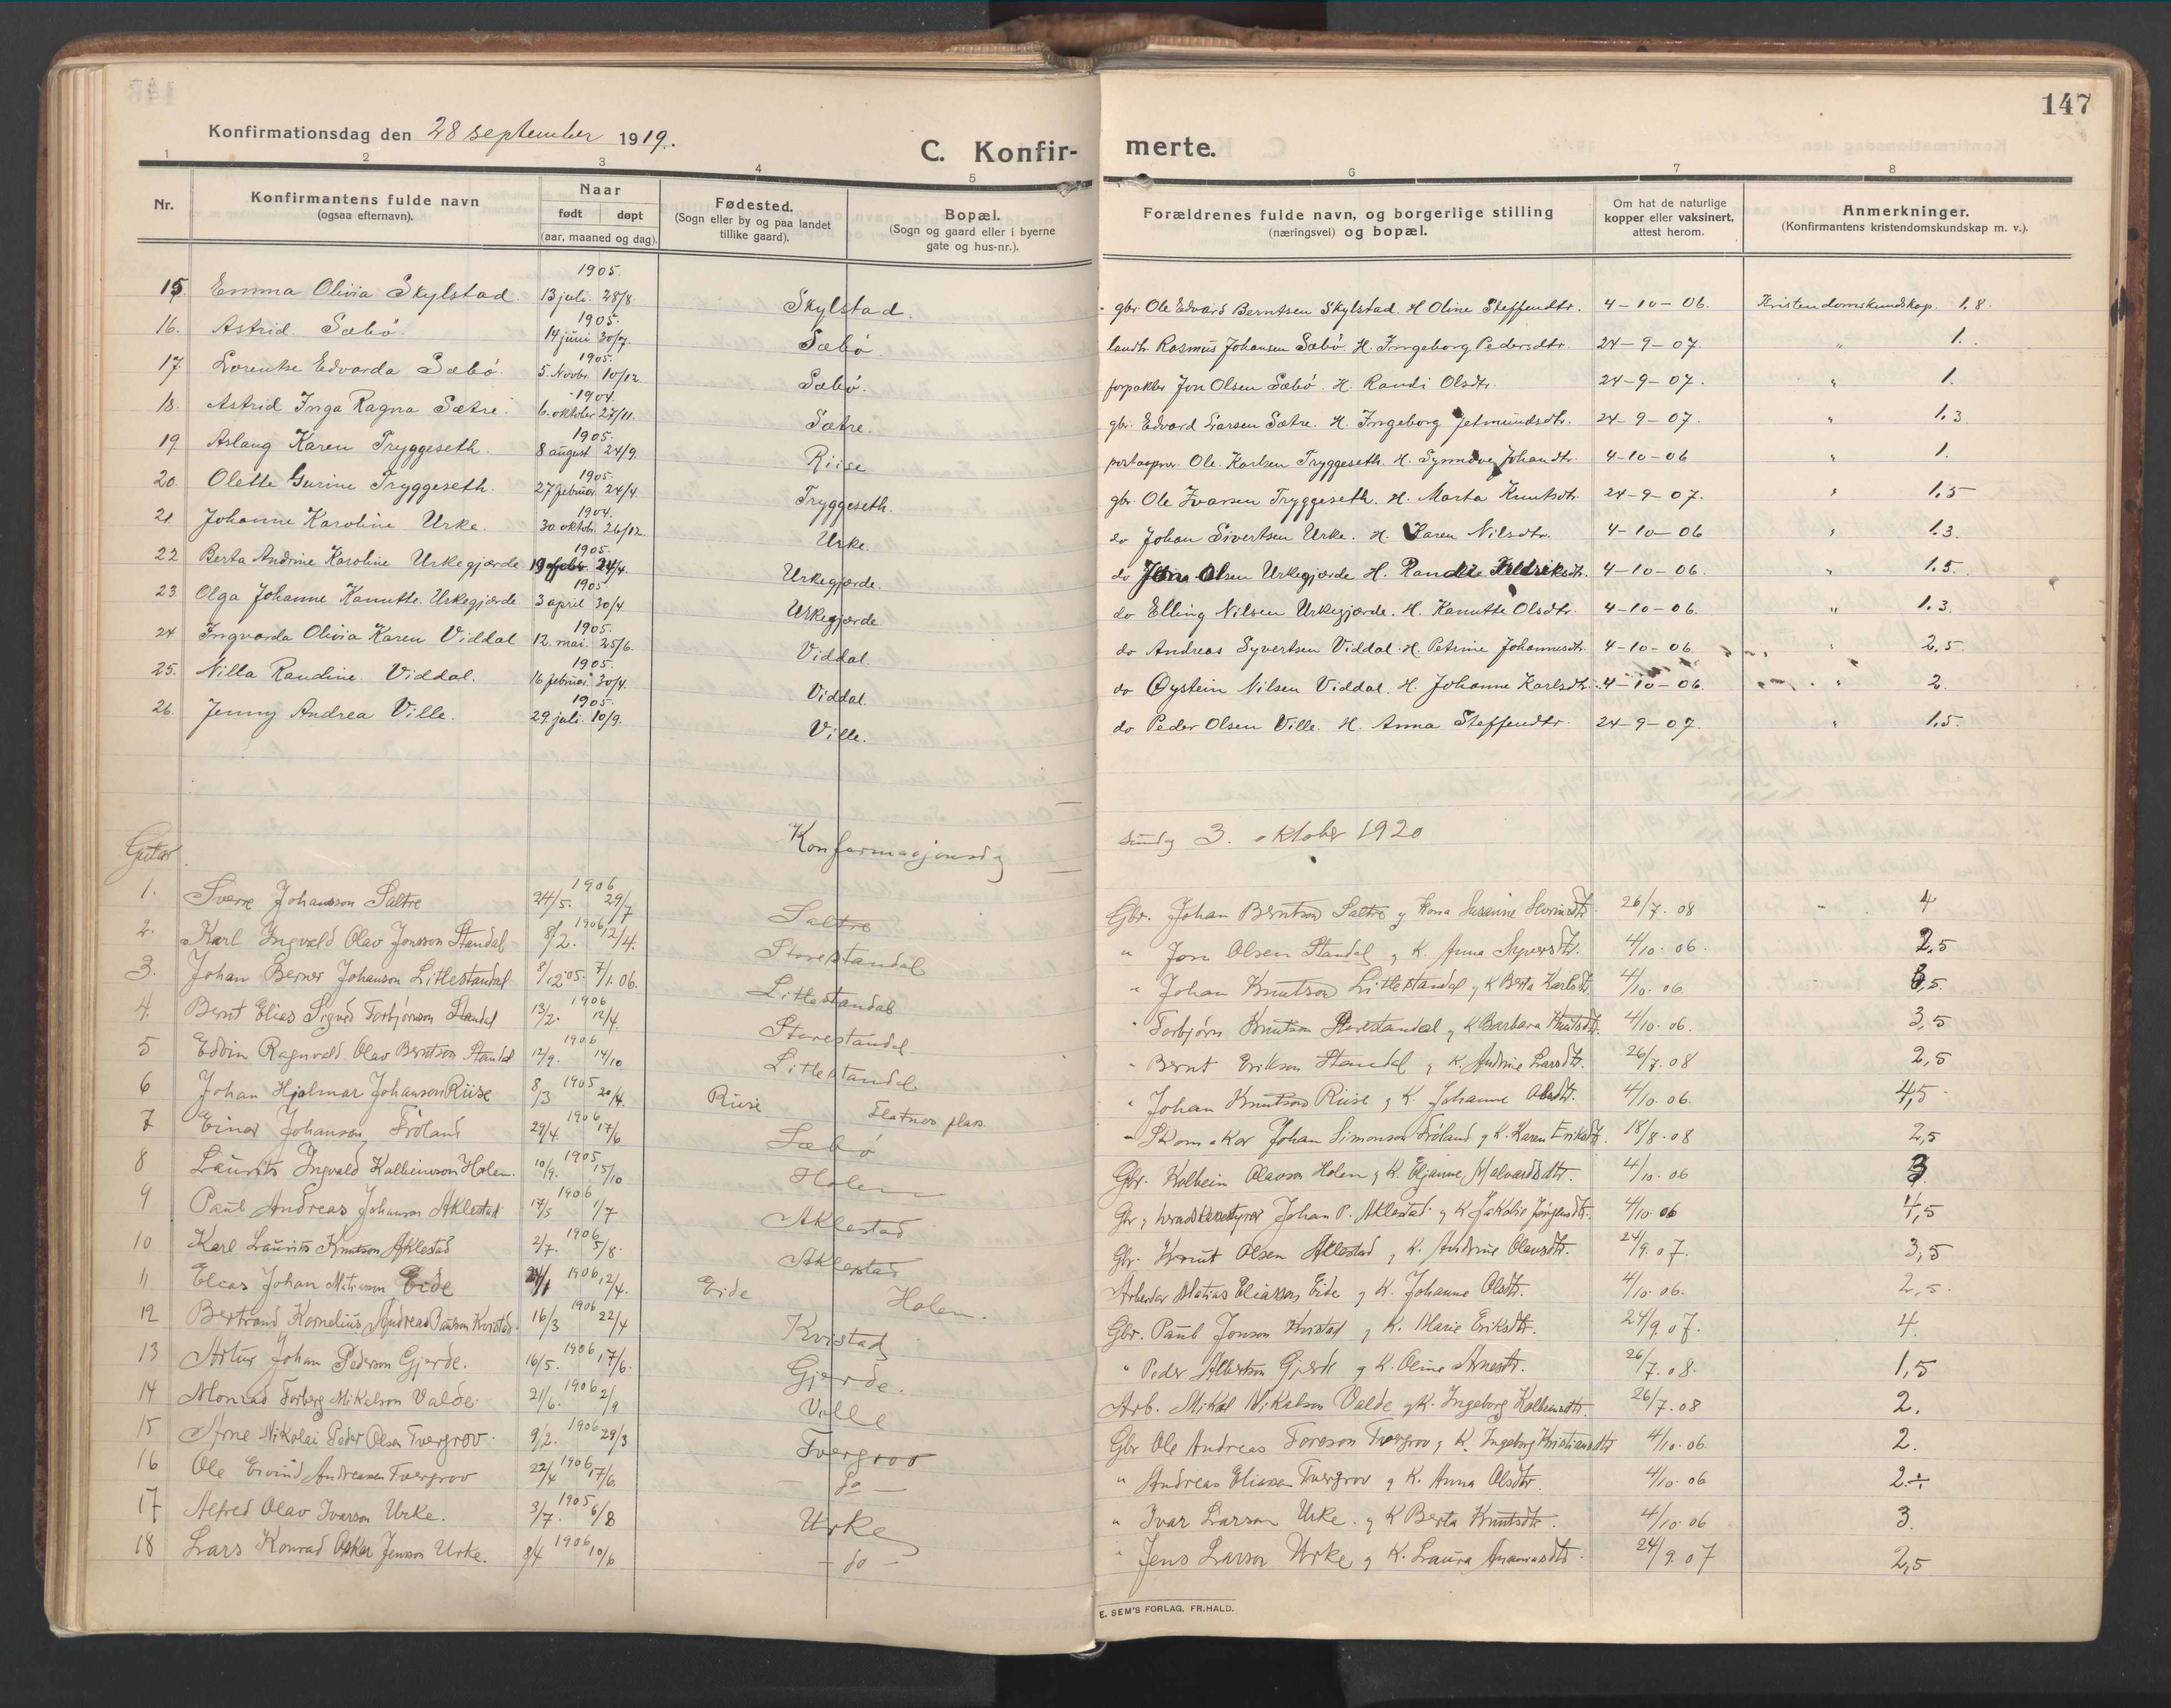 147
Konfirmationsdag den 28 september 1919.
C. Konfir- merte.
1 2 3 4 5 6 7 8
Nr.
Konfirmantens fulde navn
(ogsaa efternavn).
Naar
født døpt
(aar, maaned og dag).
Fødested.
(Sogn eller by og paa landet
tillike gaard).
Bopæl.
(Sogn og gaard eller i byerne
gate og hus-nr.).
Forældrenes fulde navn, og borgerlige stilling
(næringsvei) og bopæl.
Om hat de naturlige
kopper eller vaksinert,
attest herom.
Anmerkninger.
(Konfirmantens kristendomskundskap m. v.).
15. Emma Olivia Skylstad 1905. 13 juli 28/8. Skylstad. gbr Ole Edvard Berntsen Skylstad. H Oline Steffendtr. 4-10-06. Kristendomskundskap. 1.8
16. Astrid Sæbö. 1905. 14 juni 30/7. Sæbö landh. Rasmus Johansen Sæbö. H. Ingeborg Pedersdtr. 24-9-07. " 1.
17. Lorentse Edvarda Sæbö. 1905. 5. Novbr. 10/12. Sæbö. forpakter Jon Olsen Sæbö. H. Randi Olsdtr. 24-9-07. " 1.
18. Astrid Inga Ragna Sætre. 1904. 6. oktober 27/11. Sætre. gbr. Edvard Larsen Sætre. H. Ingeborg Jetmundsdtr. 24-9-07. " 1.3
19. Aslaug Karen Tryggeseth. 1905. 8 august 24/9. Riise postaapner. Ole Karlsen Tryggeseth. H. Synnöve Johandtr. 4-10-06 " 1.
20. Olette Gurine Tryggeseth. 1905. 27 februar 24/4. Tryggeseth. gbr. Ole Ivarsen Tryggeseth. H. Marta Knutsdtr. 24-9-07. " 1,5
21. Johanne Karoline Urke. 1904. 30 oktobr. 26/12. Urke. do Johan Sivertsen Urke. H. Karen Nilsdtr. 4-10-06 " 1.3.
22 Berta Andrine Karoline Urkegjærde 1905. 19 febr. 24/4. Urkegjærde. do Jona Olsen Urkegjærde H. Randi Fredriksdtr. 4-10-06. " 1.5.
23. Olga Johanne Kanutte Urkegjærde 1905 3 april 30/4 Urkegjærde do Elling Nilsen Urkegjærde. H. Kanutte Olsdtr. 4-10-06. " 1.3.
24 Ingvarda Olivia Karen Viddal 1905. 12. mai. 25/6. Viddal. do Andreas Syvertsen Viddal. H. Petrine Johannesdtr. 4-10-06 " 2,5
25. Nilla Randine Viddal. 1905. 16 februar. 30/4. Viddal. do Øystein Nilsen Viddal. H. Johanne Karlsdtr. 4-10-06. " 2.
26. Jenny Andrea Ville. 1905. 29. juli. 10/9. Ville. do Peder Olsen Ville. H. Anna Steffendtr. 24-9-07. " 1,5.
Konfirmasjonsdag sundg 3. oktober 1920
Gutar.
1. Sverre Johansson Saltre 1906 24/5. 29/7 Saltre Gbr. Johan Berntson Saltre g Kona Susanne Severinsdtr. 26/7. 08 4
2. Karl Ingvald Olav Jonsson Standal 8/2. 1906 12/4. Storestandal " Jon Olsen Standal g K. Anna Syversdtr. 4/10. 06. 2,5
3. Johan Berner Johanson Litlestandal 8/12 05. 7/1. 06. Litlestandal " Johan Knutson Litlestandal g K Berta Karlsdtr. 4/10. 06.
4. Bernt Elias Sigurd Torbjørnson Standal 13/2. 1906 12/4. Storestandal " Torbjørn Knutson Storestandal g K Barbara Knutsdtr. 4/10. 06. 3,5
5 Edvin Ragnvald Olav Berntson Standal 12/9. 1906 14/10 Litlestandal " Bernt Erikson Standal g K. Andrine Larsdtr. 26/7. 08 2,5
6 Johan Hjalmar Johanson Riise 8/3 1905 20/4. Riise Flatnes plass " Johan Knutson Riise g K. Johanne Olsdtr. 4/10. 06. 4,5
7 Einar Johanson Fröland 29/4. 1906 17/6 Sæbö " Skomakar Johan Simonson Fröland g K. Karen Eriksdtr. 18/8. 08 2,5
8 Laurits Ingvald Kolbeinson Holen. 10/9. 1905 15/10 Holen Gbr. Kolbein Olavson Holen g K. Eljanne Halvardsdtr. 4/10. 06 3
9 Paul Andreas Johanson Aklestad 17/5 1906 1/7 Aklestad Gbr g Johan P. Aklestad g K Jakobie Jørgensdtr. 4/10 06 4,5
10 Karl Laurits Knutson Aklestad 2/7. 1906 5/8. Aklestad Gbr. Knut Olsen Aklestad g K. Andrine Olavsdtr. 24/9. 07. 3,5
11 Elias Johan Matiasson Eide 1906 12/4. Eide Holen. Arbeidar Matias Eliasson Eide g K. Johanne Olsdtr. 4/10. 06. 2,5.
12 Bertrand Kornelius Andreas Paulson Kvistad. 16/3 1906 22/4 Kvistad Gbr. Paul Jonson Kvistad g K. Marie Eriksdtr. 24/9. 07. 4.
13 Artur Johan Pederson Gjerde. 16/5. 1906 17/6. Gjerde. " Peder Albertson Gjerde g K. Oline Arnesdtr. 26/7. 08. 1,5
14 Monrad Torberg Mikalson Valde. 21/6. 1906 2/9 Ville Arb. Mikal Mikalson Valde g K. Ingeborg Kolbeinsdtr. 26/7. 08 2.
15 Arne Nikolai Peder Olsen Tvergrov. 9/2. 1906 29/3 Tvergrov Gbr Ole Andreas Toreson Tvergrov g K. Ingeborg Kristiansdtr 4/10. 06 2.
16 Ole Eivind Andreasen Tvergrov 22/4 1906 17/6. - do - " Andreas Eliasson Tvergrov g K. Anna Olsdtr. 4/10. 06 2.÷
17 Alfred Olav Ivarson Urke. 3/7. 1905 6/8 Urke " Ivar Larson Urke. g K Berta Knutsdtr. 4/10. 06 3.
18 Lars Konrad Oskar Jensson Urke. 8/4 1906 10/6 - do - " Jens Larson Urke g K. Laura Ananiasdtr. 24/9. 07 2,5
E. SEM'S FORLAG, FR.HALD.